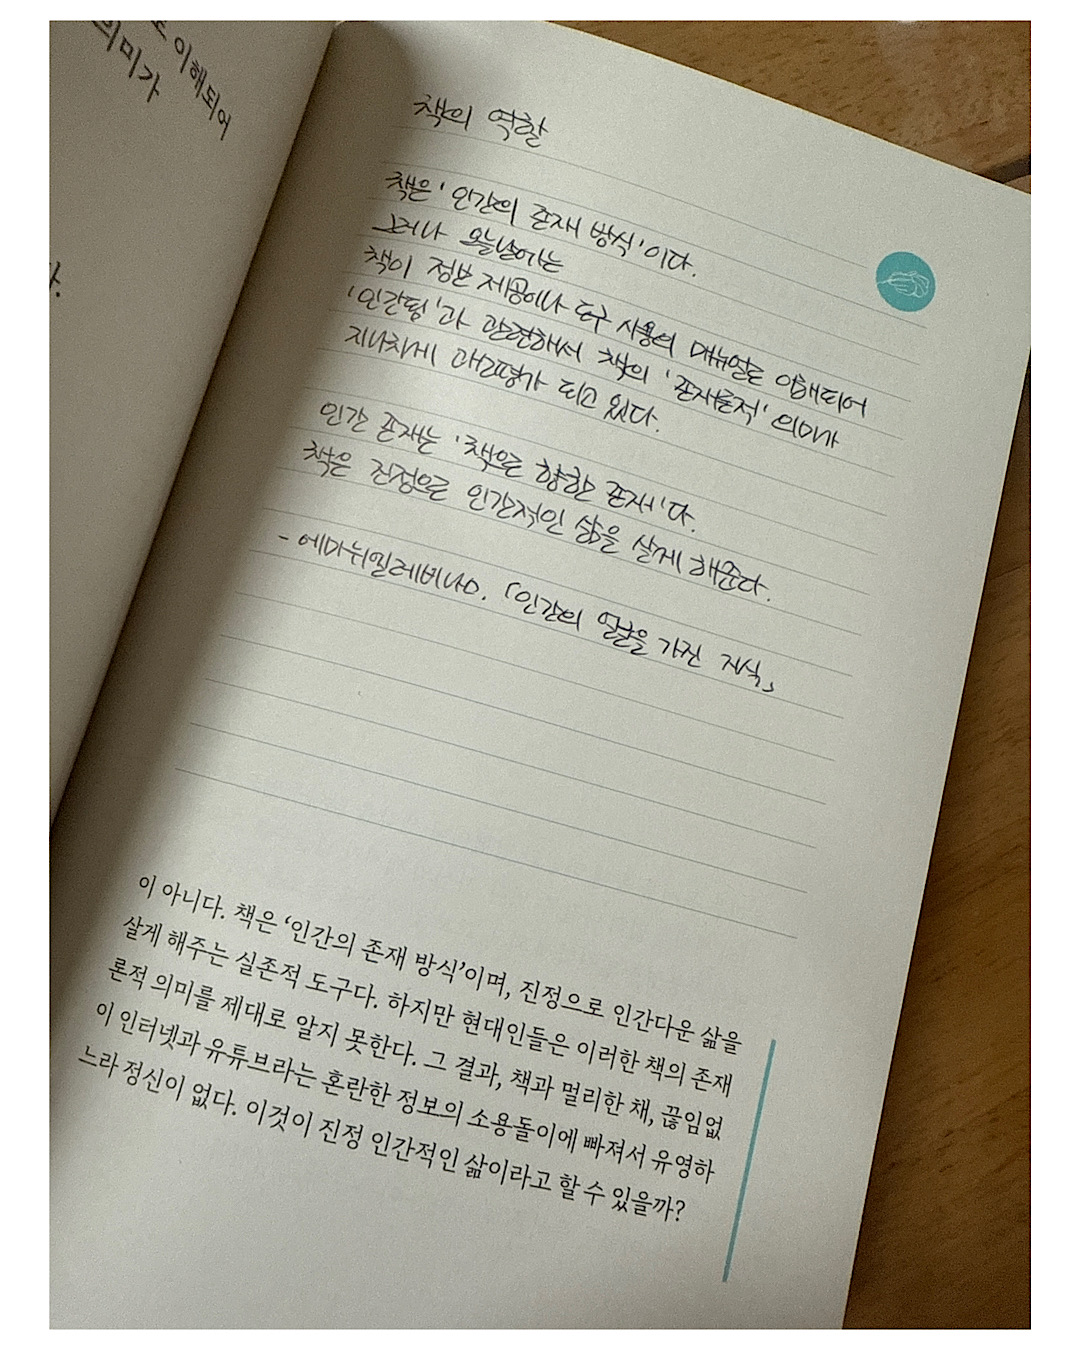 이해되어
의미가
다.
책의 역할
책은 '인간의 존재 방식'이다.
그러나 오늘날에는
책이 정보 제공이나 도구 사용의 매뉴얼로 이해되어
'인간됨'과 관련해서 책의 '존재론적' 의미가
지나치게 과소평가 되고 있다.
인간 존재는 '책으로 향한 존재'다.
책은 진정으로 인간적인 삶을 살게 해준다.
- 에마뉘엘레비나스. 「인간의 얼굴을 가진 지식」
이 아니다. 책은 ‘인간의 존재 방식’이며, 진정으로 인간다운 삶을
살게 해주는 실존적 도구다. 하지만 현대인들은 이러한 책의 존재
론적 의미를 제대로 알지 못한다. 그 결과, 책과 멀리한 채, 끊임없
이 인터넷과 유튜브라는 혼란한 정보의 소용돌이에 빠져서 유영하
느라 정신이 없다. 이것이 진정 인간적인 삶이라고 할 수 있을까?